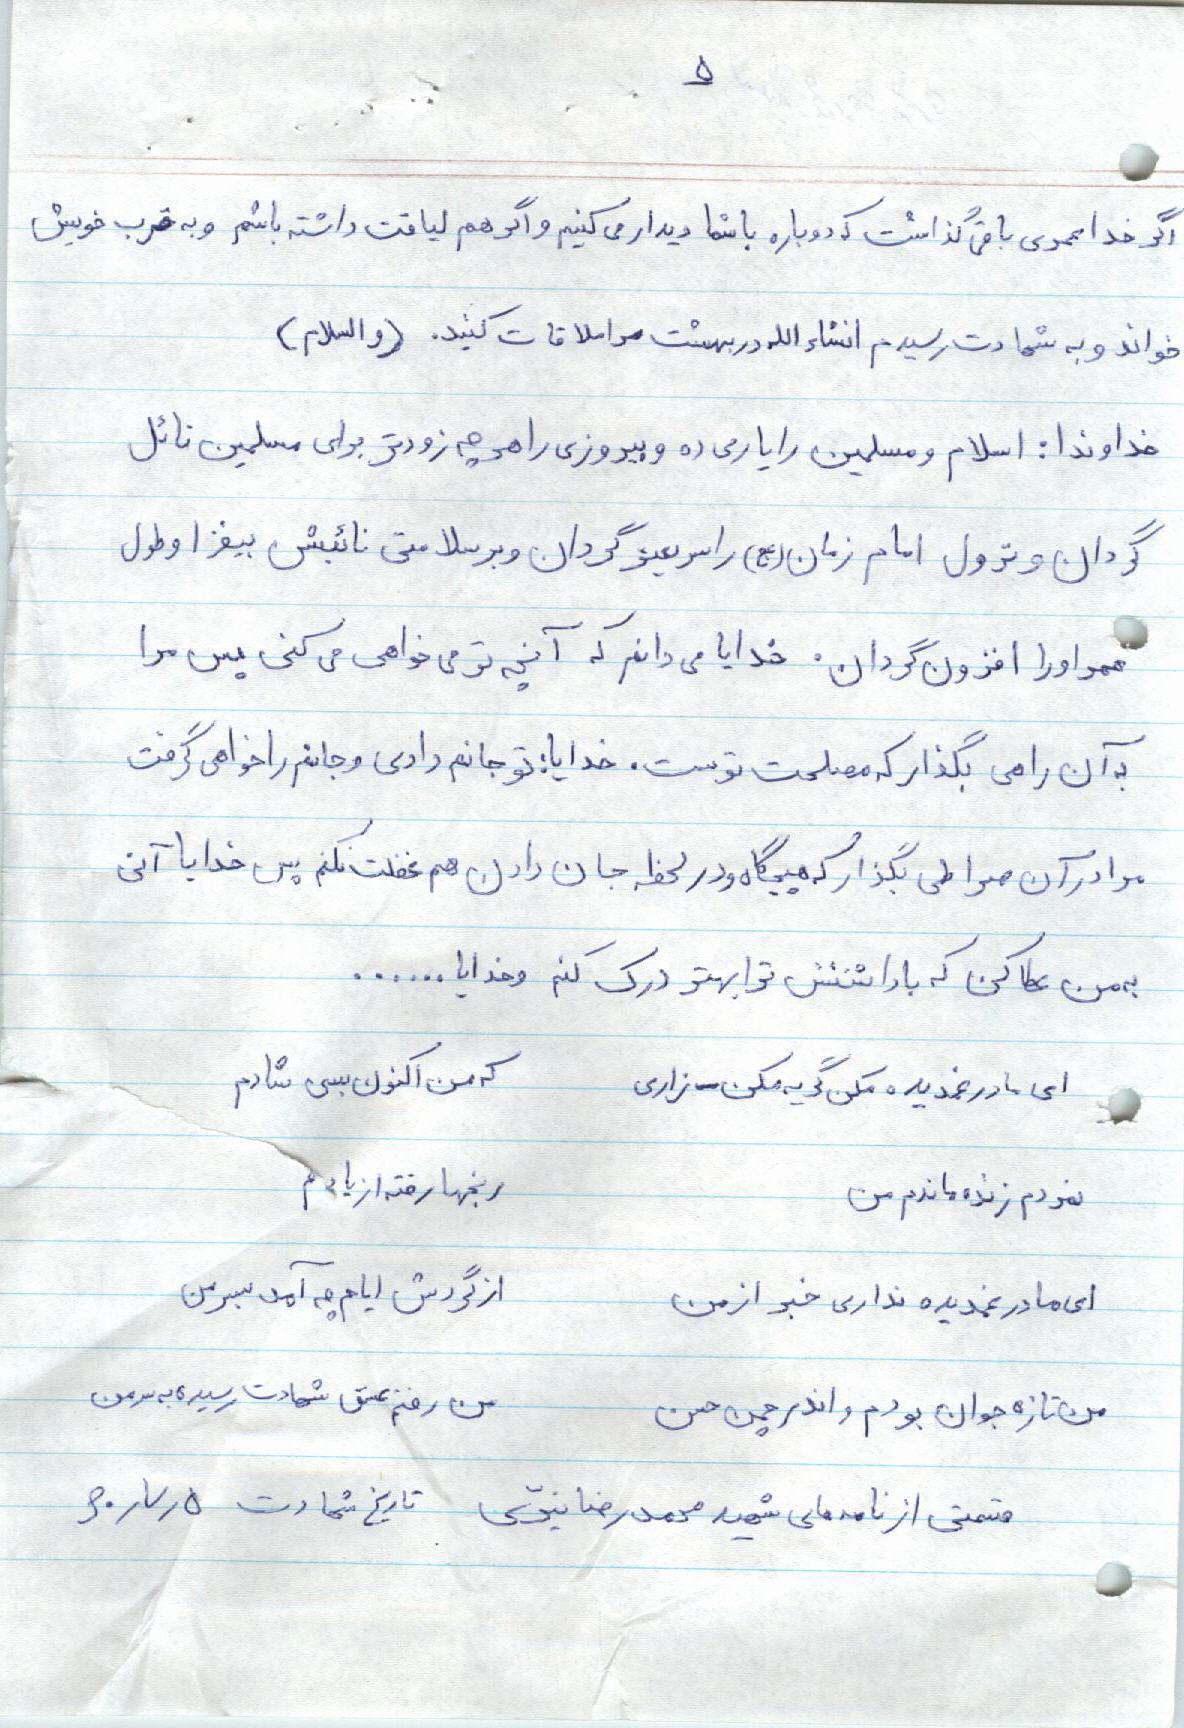 ۵
اگر خدا عمری باقی گذاشت که دوباره با شما دیدار می کنیم و اگر هم لیاقت داشته باشم و به قرب خویش
خواند و به شهادت رسیدم انشاء الله در بهشت مرا ملاقات کنید. (والسلام)
خداوندا: اسلام و مسلمین را یاری ده و پیروزی را هر چه زودتر برای مسلمین نائل
گردان و نزول امام زمان (عج) را سریعتر گردان و بر سلامتی نائبش بیفزا و طول
عمر او را افزون گردان. خدایا می دانم که آنچه تو می خواهی می کنی پس مرا
به آن راهی بگذار که مصلحت توست. خدایا: تو جانم دادی و جانم را خواهی گرفت
مرا در آن صراطی بگذار که هیچگاه و در لحظه جان دادن هم غفلت نکنم پس خدایا آنی
به من عطا کن که با داشتنش ترا بهتر درک کنم و خدایا ......
ای مادر غمدیده مکن گریه مکن زاری که من اکنون بسی شادم
نمردم زنده ماندم من رنجها رفته از یادم
ای مادر غمدیده نداری خبر از من از گردش ایام چه آمد بسر من
من تازه جوان بودم و اندر چمن حسن من رفتم عشق شهادت رسیده به سر من
قسمتی از نامه های شهید محمد رضا تاریخ شهادت